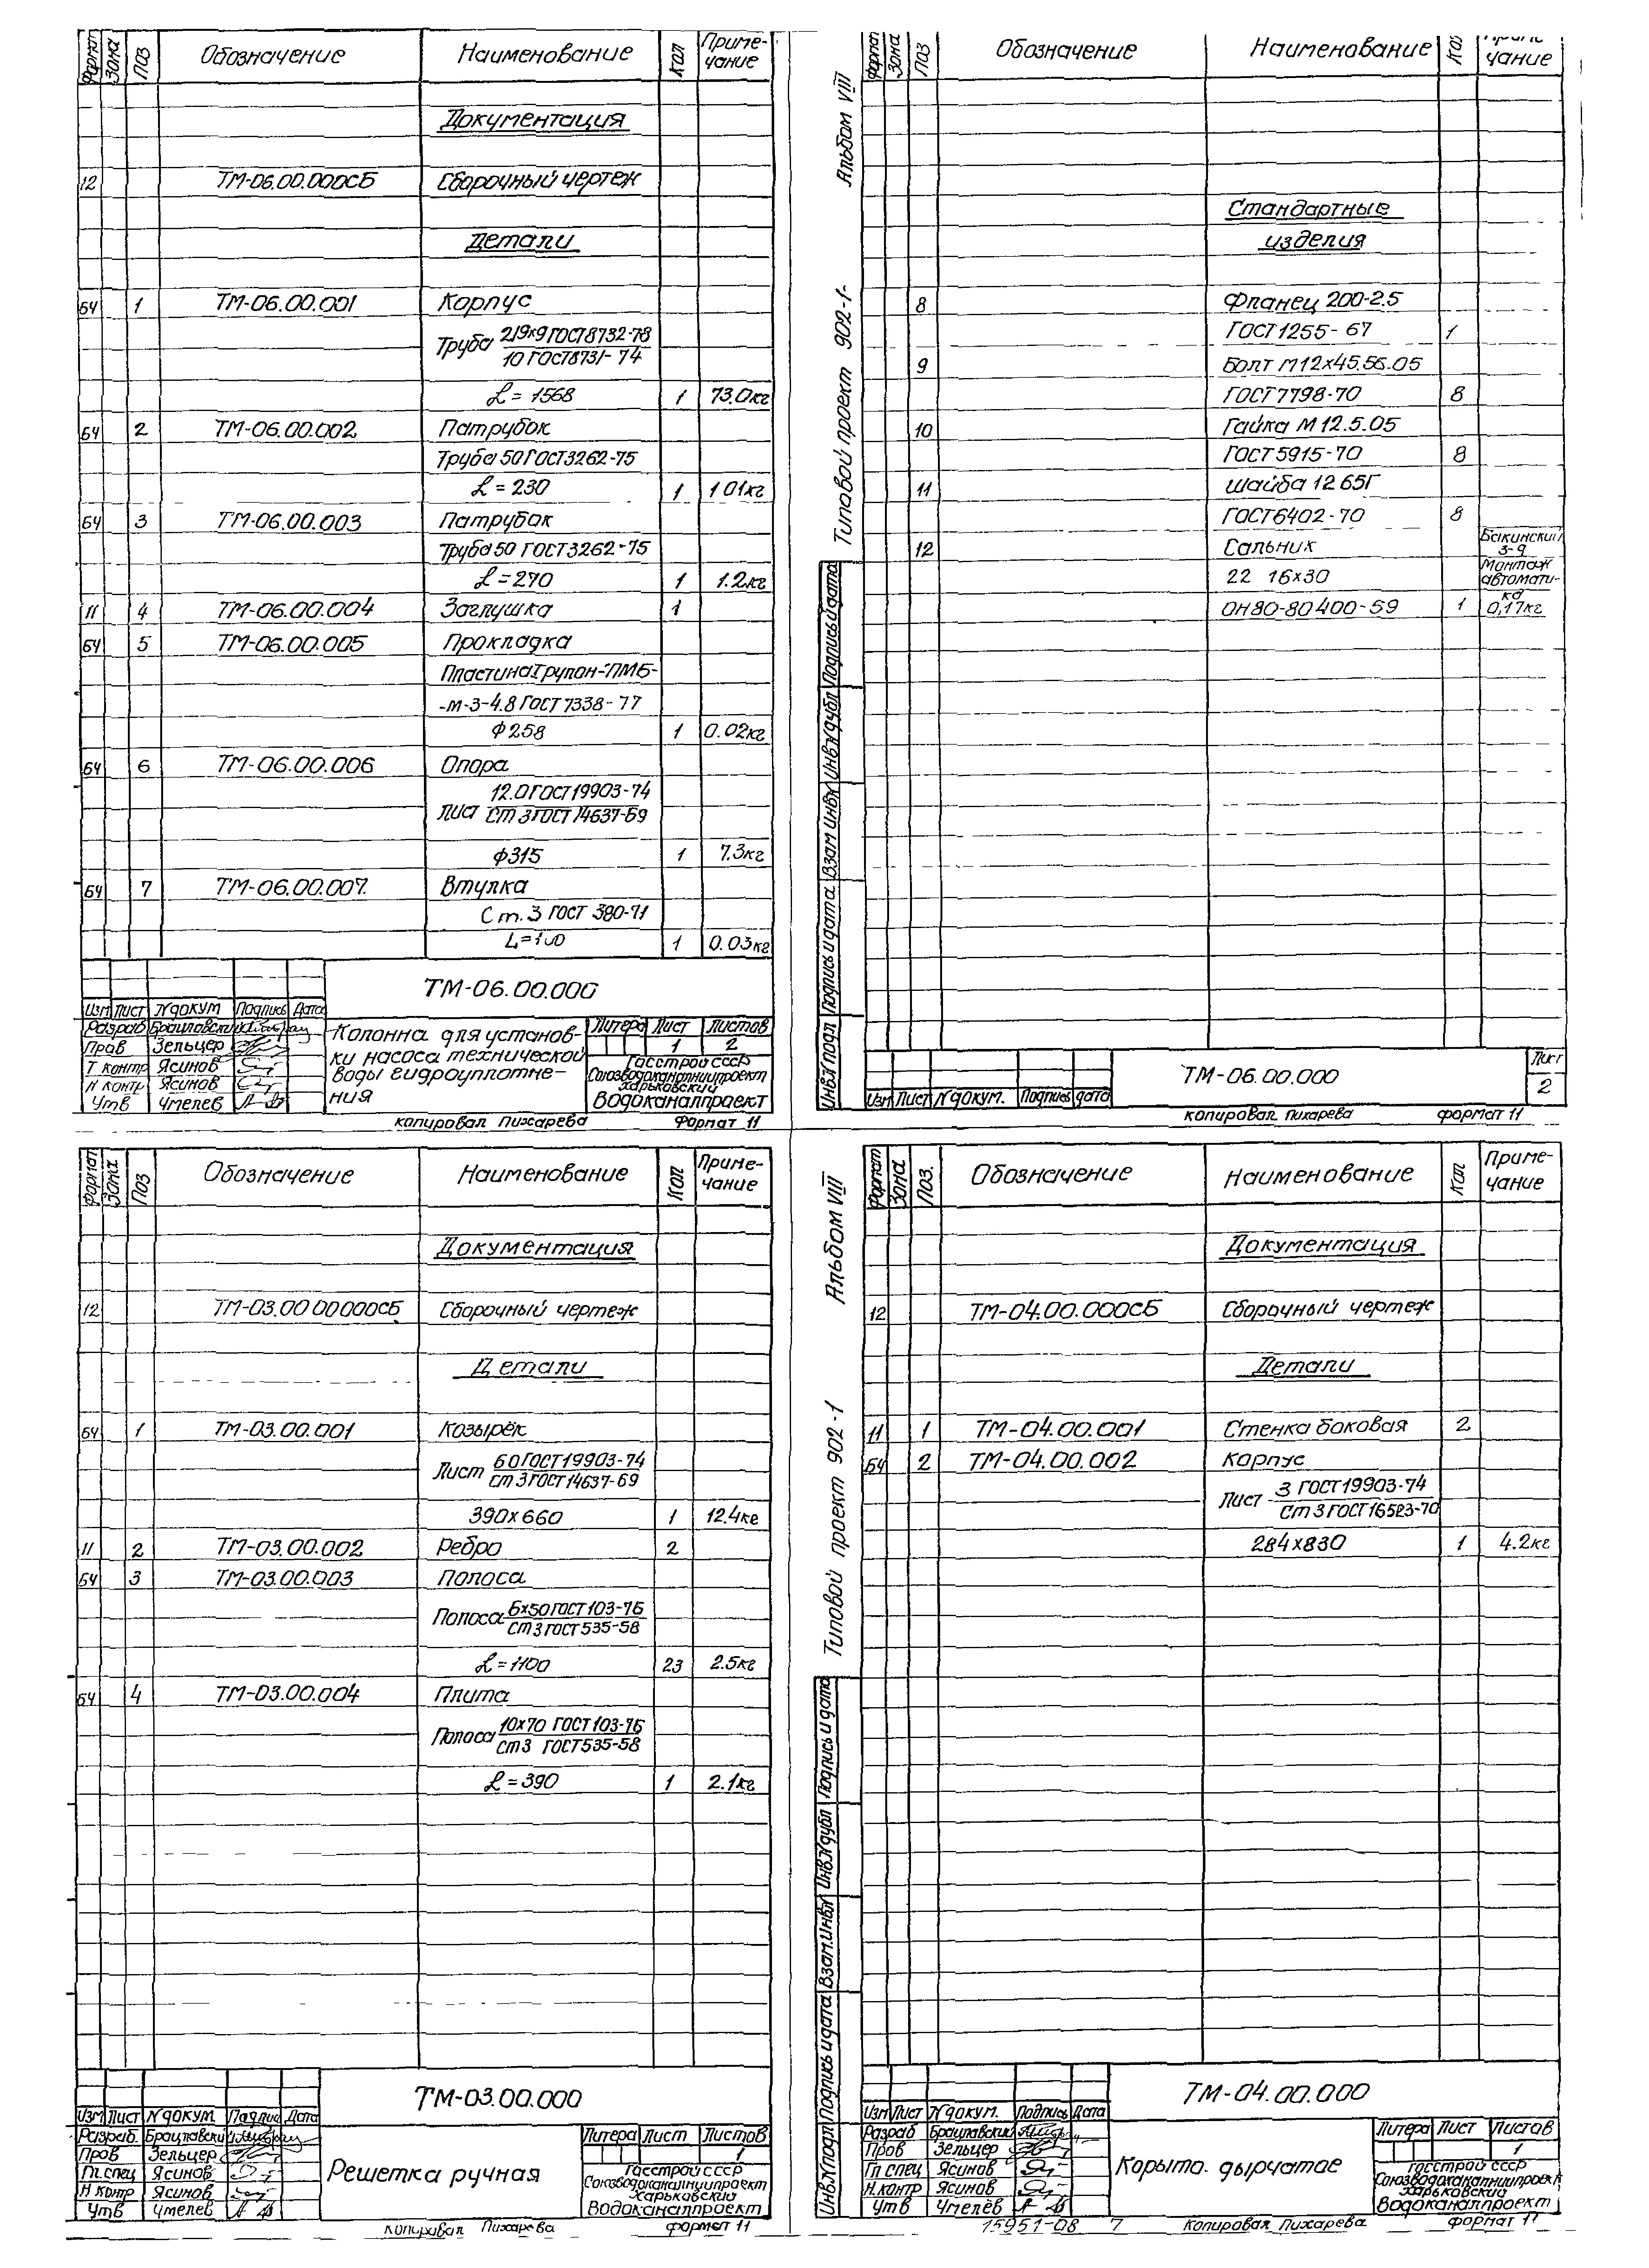 Формат Зона Поз Обозначение Наименование Кол Приме-
чание
Документация
12 ТМ-06.00.000СБ Сборочный чертеж
Детали
БЧ 1 ТМ-06.00.001 Корпус
Труба 219х9 ГОСТ8732-78
10 ГОСТ8731-74
L=1568 1 73.0кг
БЧ 2 ТМ-06.00.002 Патрубок
Труба 50 ГОСТ3262-75
L=230 1 1 01кг
БЧ 3 ТМ-06.00.003 Патрубок
Труба 50 ГОСТ3262-75
L=270 1 1.2кг
11 4 ТМ-06.00.004 Заглушка 1
БЧ 5 ТМ-06.00.005 Прокладка
Пластина I рулон-ПМБ-
-м-3-4.8 ГОСТ7338-77
Ф258 1 0.02кг
БЧ 6 ТМ-06.00.006 Опора
Лист 12.0 ГОСТ19903-74
Ст 3 ГОСТ 14637-69
Ф315 1 7.3кг
БЧ 7 ТМ-06.00.007 Втулка
Ст.3 ГОСТ 380-71
L=100 1 0.03кг
ТМ-06.00.000
Изм Лист N докум Подпись Дата
Разраб Брацлавский
Пров Зельцер
Т контр Ясинов
Н контр Ясинов
Утв Чмелев
Колонна для установ-
ки насоса технической
воды гидроуплотне-
ния
Литера Лист Листов
1 2
Госстрой СССР
Союзводоканалниипроект
Харьковский
Водоканалпроект
Копировал Пихарева Формат 11
Альбом VIII
Типовой проект 902-1-
Формат Зона Поз Обозначение Наименование Кол Приме-
чание
Стандартные
изделия
8 Фланец 200-2.5
ГОСТ1255-67 1
9 Болт М12х45.56.05
ГОСТ7798-70 8
10 Гайка М 12.5.05
ГОСТ5915-70 8
11 Шайба 12 65Г
ГОСТ6402-70 8
12 Сальник Бакинский
з-д
22 16х30 Монтаж
автомати-
ка
ОН80-80400-59 1 0,17кг
Инв.N подл Подпись и дата Взам инв.N Инв.N дубл Подпись и дата
Изм Лист N докум. Подпись дата
ТМ-06.00.000
Лист
2
Копировал Пихарева формат 11
Формат Зона Поз Обозначение Наименование Кол Приме-
чание
Документация
12 ТМ-03.00 00000СБ Сборочный чертеж
Детали
БЧ 1 ТМ-03.00.001 Козырёк
Лист 6 0 ГОСТ19903-74
ст 3 ГОСТ14637-69
390х660 1 12.4кг
11 2 ТМ-03.00.002 Ребро 2
БЧ 3 ТМ-03.00.003 Полоса
Полоса 6х50 ГОСТ103-76
Ст3 ГОСТ535-58
L=1100 23 2.5кг
БЧ 4 ТМ-03.00.004 Плита
Полоса 10х70 ГОСТ103-76
ст3 ГОСТ535-58
L=390 1 2.1кг
ТМ-03.00.000
Изм Лист N докум Подпис Дата
Разраб. Брацлавский
Пров Зельцер
Гл. спец Ясинов
Н контр Ясинов
Утв Чмелев
Решетка ручная
Литера Лист Листов
1
Госстрой СССР
Союзводоканалниипроект
Харьковский
Водоканалпроект
Копировал Пихарева формат 11
Альбом VIII
Типовой проект 902-1
Формат Зона Поз. Обозначение Наименование Кол Приме-
чание
Документация
12 ТМ-04.00.000СБ Сборочный чертеж
Детали
11 1 ТМ-04.00.001 Стенка боковая 2
БЧ 2 ТМ-04.00.002 Корпус
Лист 3 ГОСТ19903-74
Ст 3 ГОСТ16523-70
284х830 1 4.2кг
Инв.N подл Подпись и дата Взам.инв.N Инв.N дубл Подпись и дата
ТМ-04.00.000
Изм Лист N докум. Подпись Дата
Разраб Брацлавский
Пров Зельцер
Гл спец Ясинов
Н.контр Ясинов
Утв Чмелёв
Корыто дырчатое
Литера Лист Листов
1
Госстрой СССР
Союзводоканалниипроект
Харьковский
Водоканалпроект
15951-08 7 Копировал Пихарева формат 11